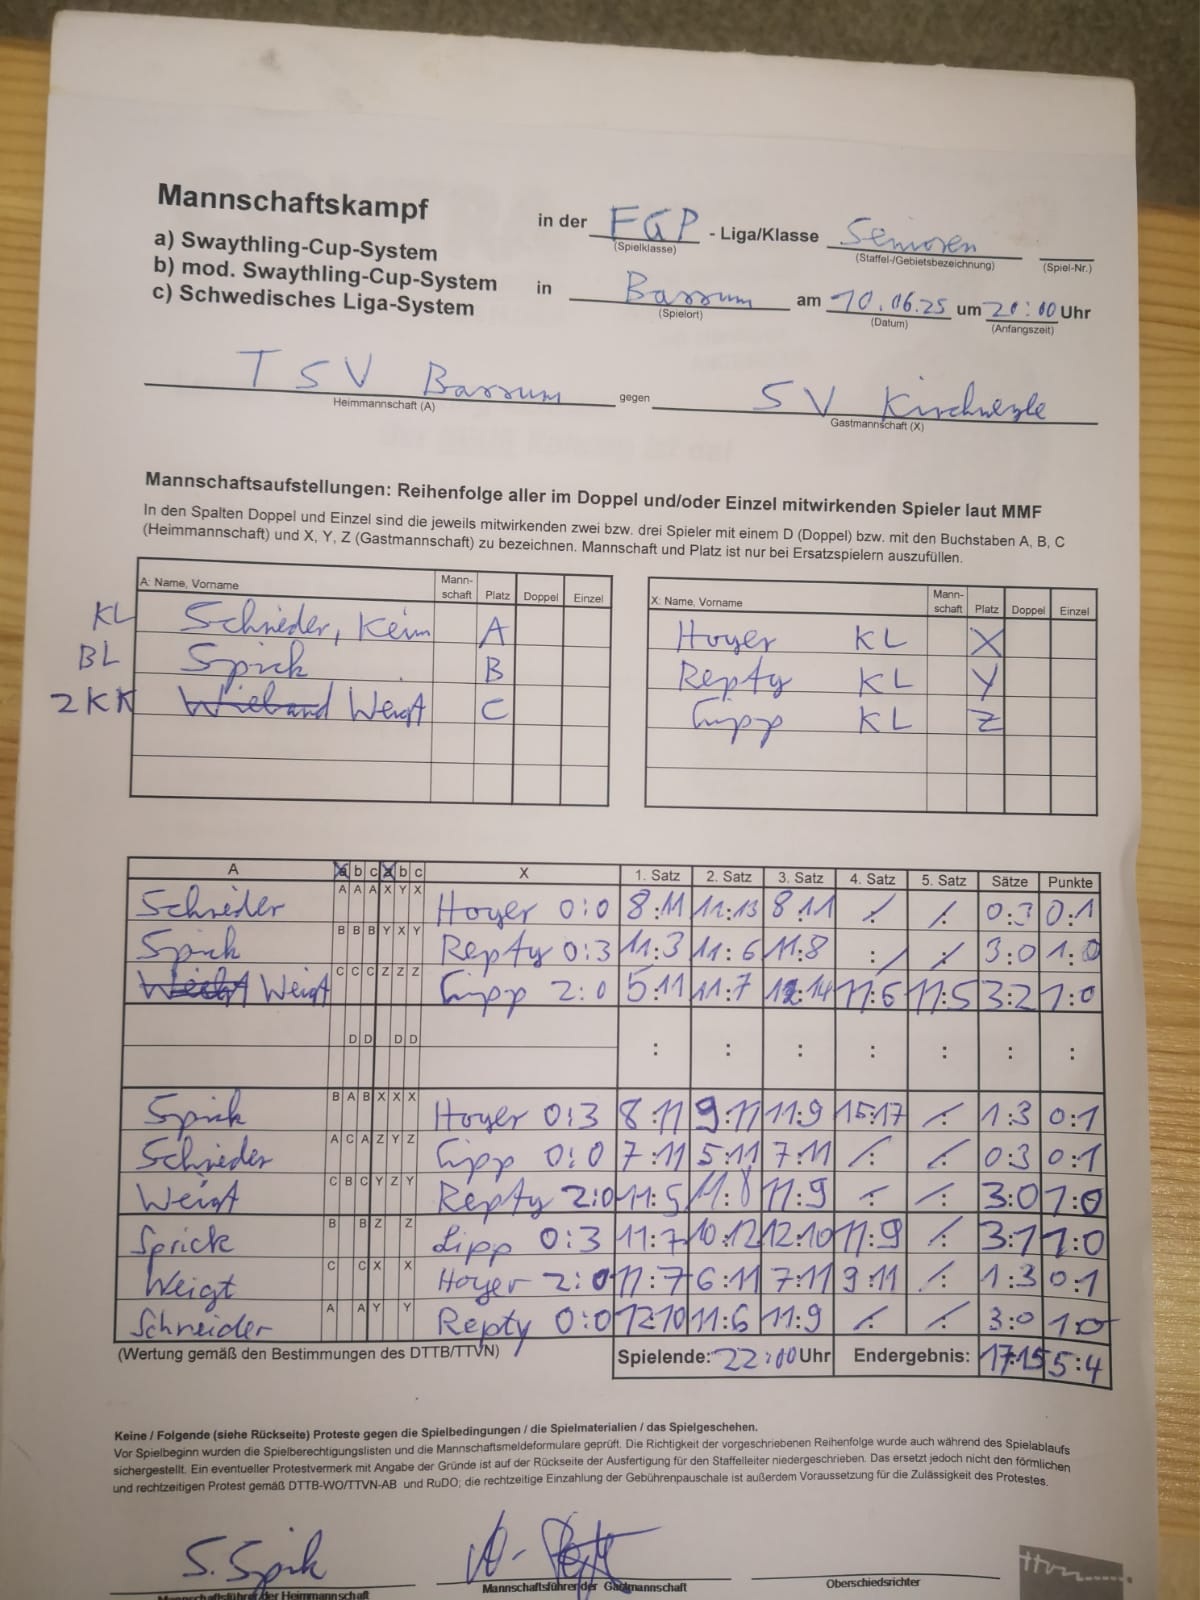 Mannschaftskampf
a) Swaythling-Cup-System
b) mod. Swaythling-Cup-System
c) Schwedisches Liga-System
in der FGP - Liga/Klasse Senioren
(Spielklasse) (Staffel-/Gebietsbezeichnung) (Spiel-Nr.)
in Barrum am 10.06.25 um 20:00 Uhr
(Spielort) (Datum) (Anfangszeit)
TSV Barrum gegen SV Kirchweyhe
Heimmannschaft (A) Gastmannschaft (X)
Mannschaftsaufstellungen: Reihenfolge aller im Doppel und/oder Einzel mitwirkenden Spieler laut MMF
In den Spalten Doppel und Einzel sind die jeweils mitwirkenden zwei bzw. drei Spieler mit einem D (Doppel) bzw. mit den Buchstaben A, B, C
(Heimmannschaft) und X, Y, Z (Gastmannschaft) zu bezeichnen. Mannschaft und Platz ist nur bei Ersatzspielern auszufüllen.
A: Name, Vorname Mann-schaft Platz Doppel Einzel
KL Schnieder, A
BL Sprick B
2KK Wieband Weigt C
X: Name, Vorname Mann-schaft Platz Doppel Einzel
Hoyer KL X
Repty KL Y
Lipp KL Z
A a b c a b c X 1. Satz 2. Satz 3. Satz 4. Satz 5. Satz Sätze Punkte
Schnieder A A A X Y X Hoyer 0:0 8:11 11:13 8:11 : : 0:3 0:1
Sprick B B B Y X Y Repty 0:3 11:3 11:6 11:8 : : 3:0 1:0
Weigt C C C Z Z Z Lipp 2:0 5:11 11:7 12:14 11:6 11:5 3:2 1:0
D D D D : : : : : : :
Sprick B A B X X X Hoyer 0:3 8:11 9:11 11:9 15:17 : 1:3 0:1
Schnieder A C A Z Y Z Lipp 0:0 7:11 5:11 7:11 : : 0:3 0:1
Weigt C B C Y Z Y Repty 2:0 11:5 11:8 11:9 : : 3:0 1:0
Sprick B B Z Z Lipp 0:3 11:7 10:12 12:10 11:9 : 3:1 1:0
Weigt C C X X Hoyer 2:0 11:7 6:11 7:11 9:11 : 1:3 0:1
Schneider A A Y Y Repty 0:0 12:10 11:6 11:9 : : 3:0 1:0
(Wertung gemäß den Bestimmungen des DTTB/TTVN) Spielende: 22:00 Uhr Endergebnis: 17:15 5:4
Keine / Folgende (siehe Rückseite) Proteste gegen die Spielbedingungen / die Spielmaterialien / das Spielgeschehen.
Vor Spielbeginn wurden die Spielberechtigungslisten und die Mannschaftsmeldeformulare geprüft. Die Richtigkeit der vorgeschriebenen Reihenfolge wurde auch während des Spielablaufs
sichergestellt. Ein eventueller Protestvermerk mit Angabe der Gründe ist auf der Rückseite der Ausfertigung für den Staffelleiter niedergeschrieben. Das ersetzt jedoch nicht den förmlichen
und rechtzeitigen Protest gemäß DTTB-WO/TTVN-AB und RuDO; die rechtzeitige Einzahlung der Gebührenpauschale ist außerdem Voraussetzung für die Zulässigkeit des Protestes.
S. Sprik
Mannschaftsführer der Heimmannschaft Mannschaftsführer der Gastmannschaft Oberschiedsrichter
ttvn